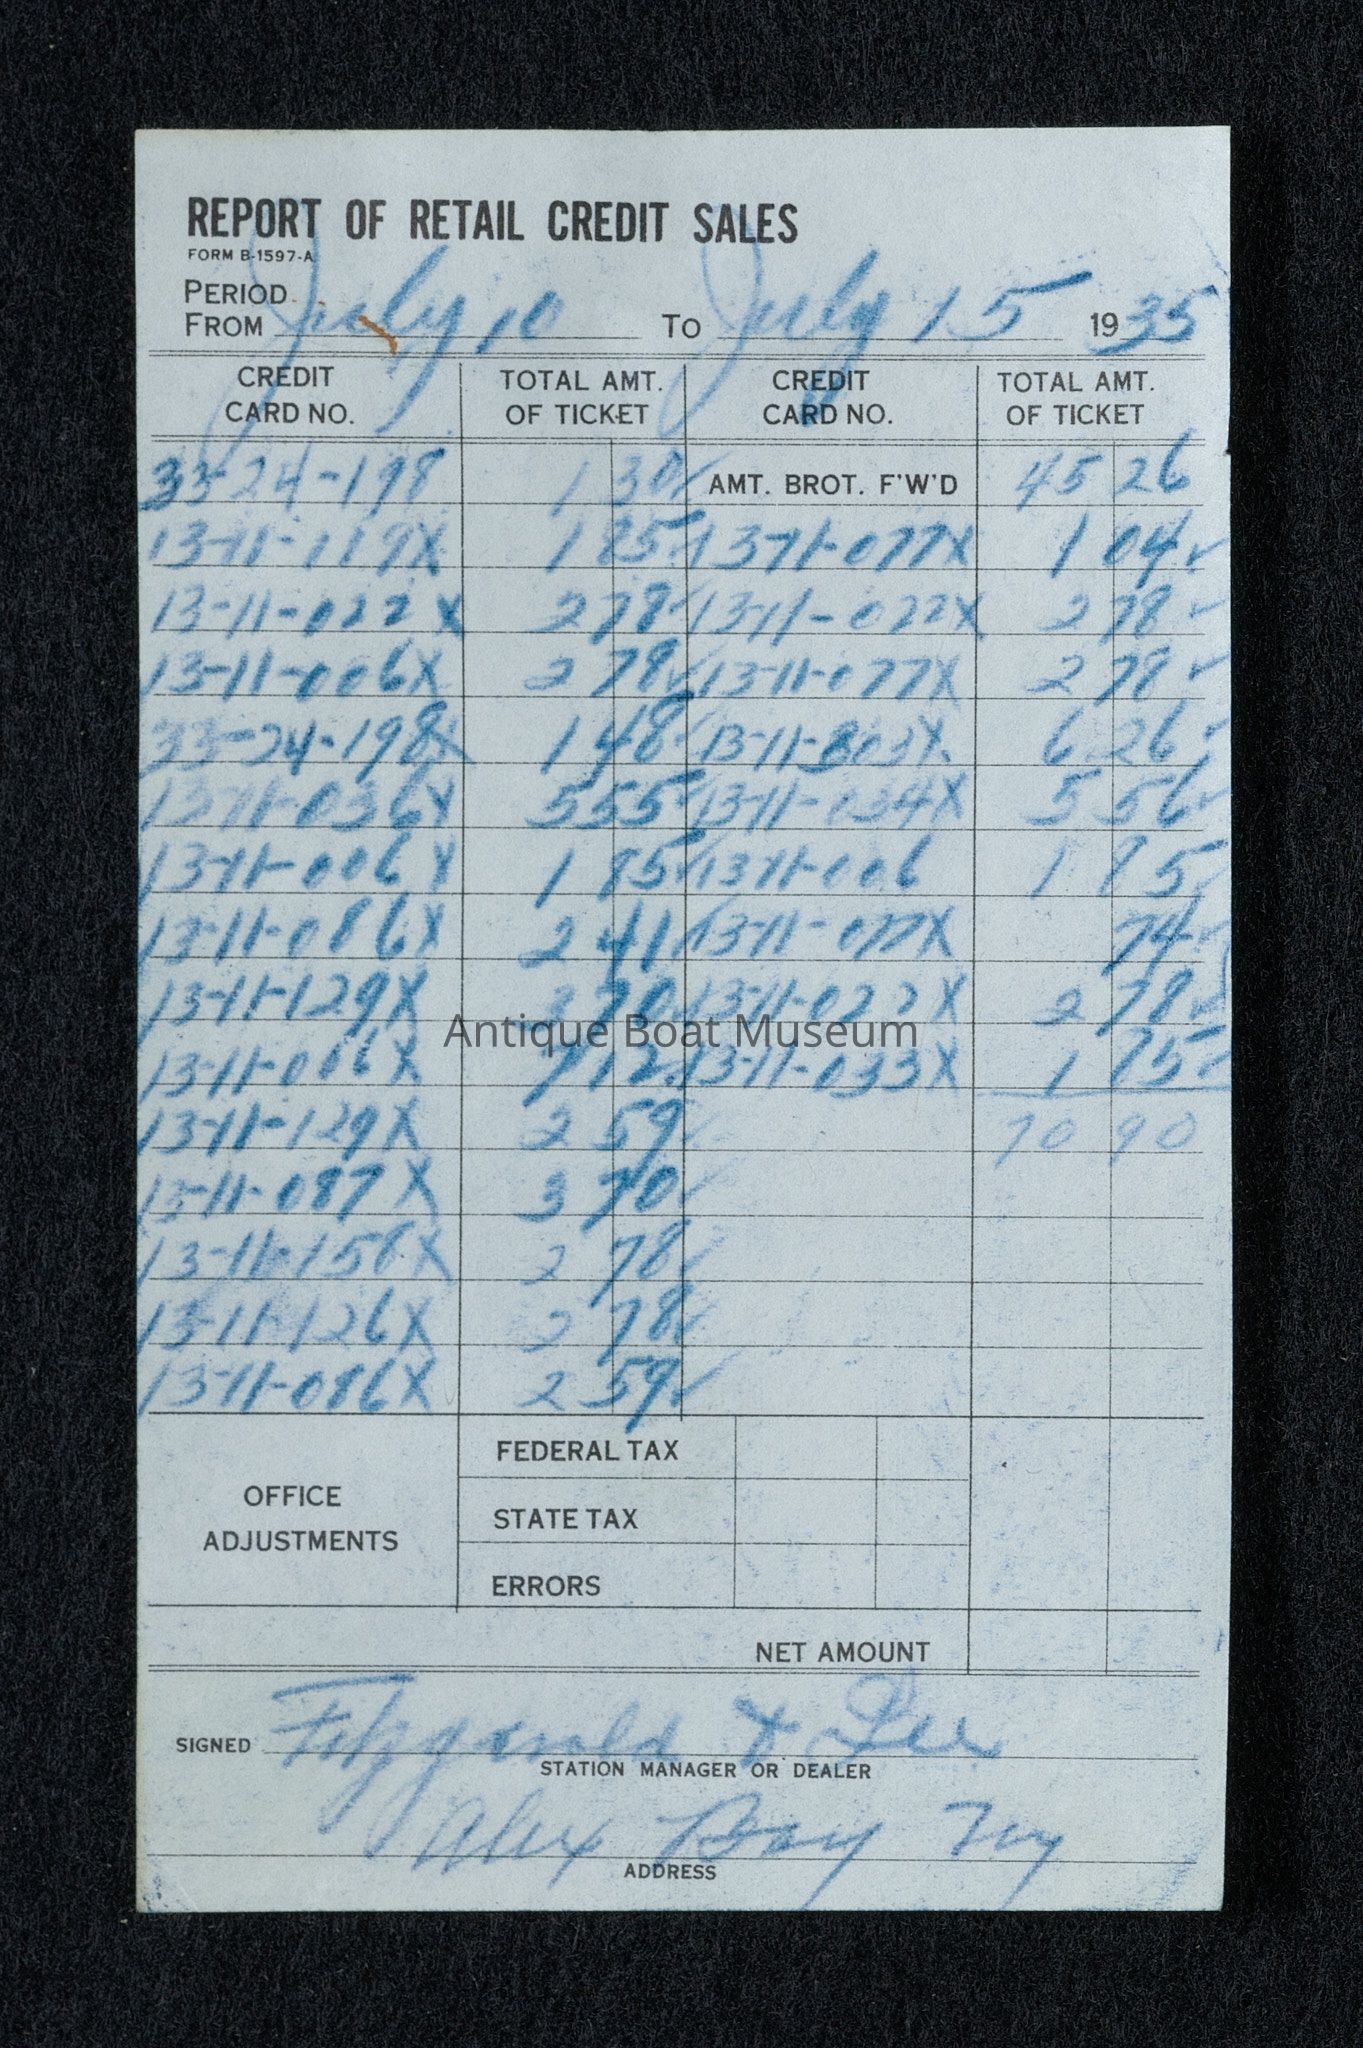 REPORT OF RETAIL CREDIT SALES
FORM B-1597-A
PERIOD
FROM July 10 TO July 15 1935
CREDIT CARD NO. TOTAL AMT. OF TICKET CREDIT CARD NO. TOTAL AMT. OF TICKET
33-24-198 1 30 ✓ AMT. BROT. F'W'D 45 26
13-11-119 X 1 85 ✓ 13-11-077 X 1 04 ✓
13-11-022 X 2 78 ✓ 13-11-022 X 2 78 ✓
13-11-006 X 2 78 ✓ 13-11-077 X 2 78 ✓
33-24-198 X 1 48 ✓ 13-11-803 X 6 26 ✓
13-11-036 X 5 55 ✓ 13-11-034 X 5 56 ✓
13-11-006 X 1 85 ✓ 13-11-006 1 85 ✓
13-11-086 X 2 41 ✓ 13-11-077 X 74 ✓
13-11-129 X 3 70 ✓ 13-11-022 X 2 78 ✓
13-11-006 X 7 12 ✓ 13-11-033 X 1 85 ✓
13-11-129 X 2 59 ✓ 70 90
13-11-087 X 3 70 ✓
13-11-158 X 2 78 ✓
13-11-126 X 2 78 ✓
13-11-086 X 2 59 ✓
OFFICE ADJUSTMENTS
FEDERAL TAX
STATE TAX
ERRORS
NET AMOUNT
SIGNED Fitzgerald & Lee
STATION MANAGER OR DEALER
Alex Bay Ny
ADDRESS
Antique Boat Museum